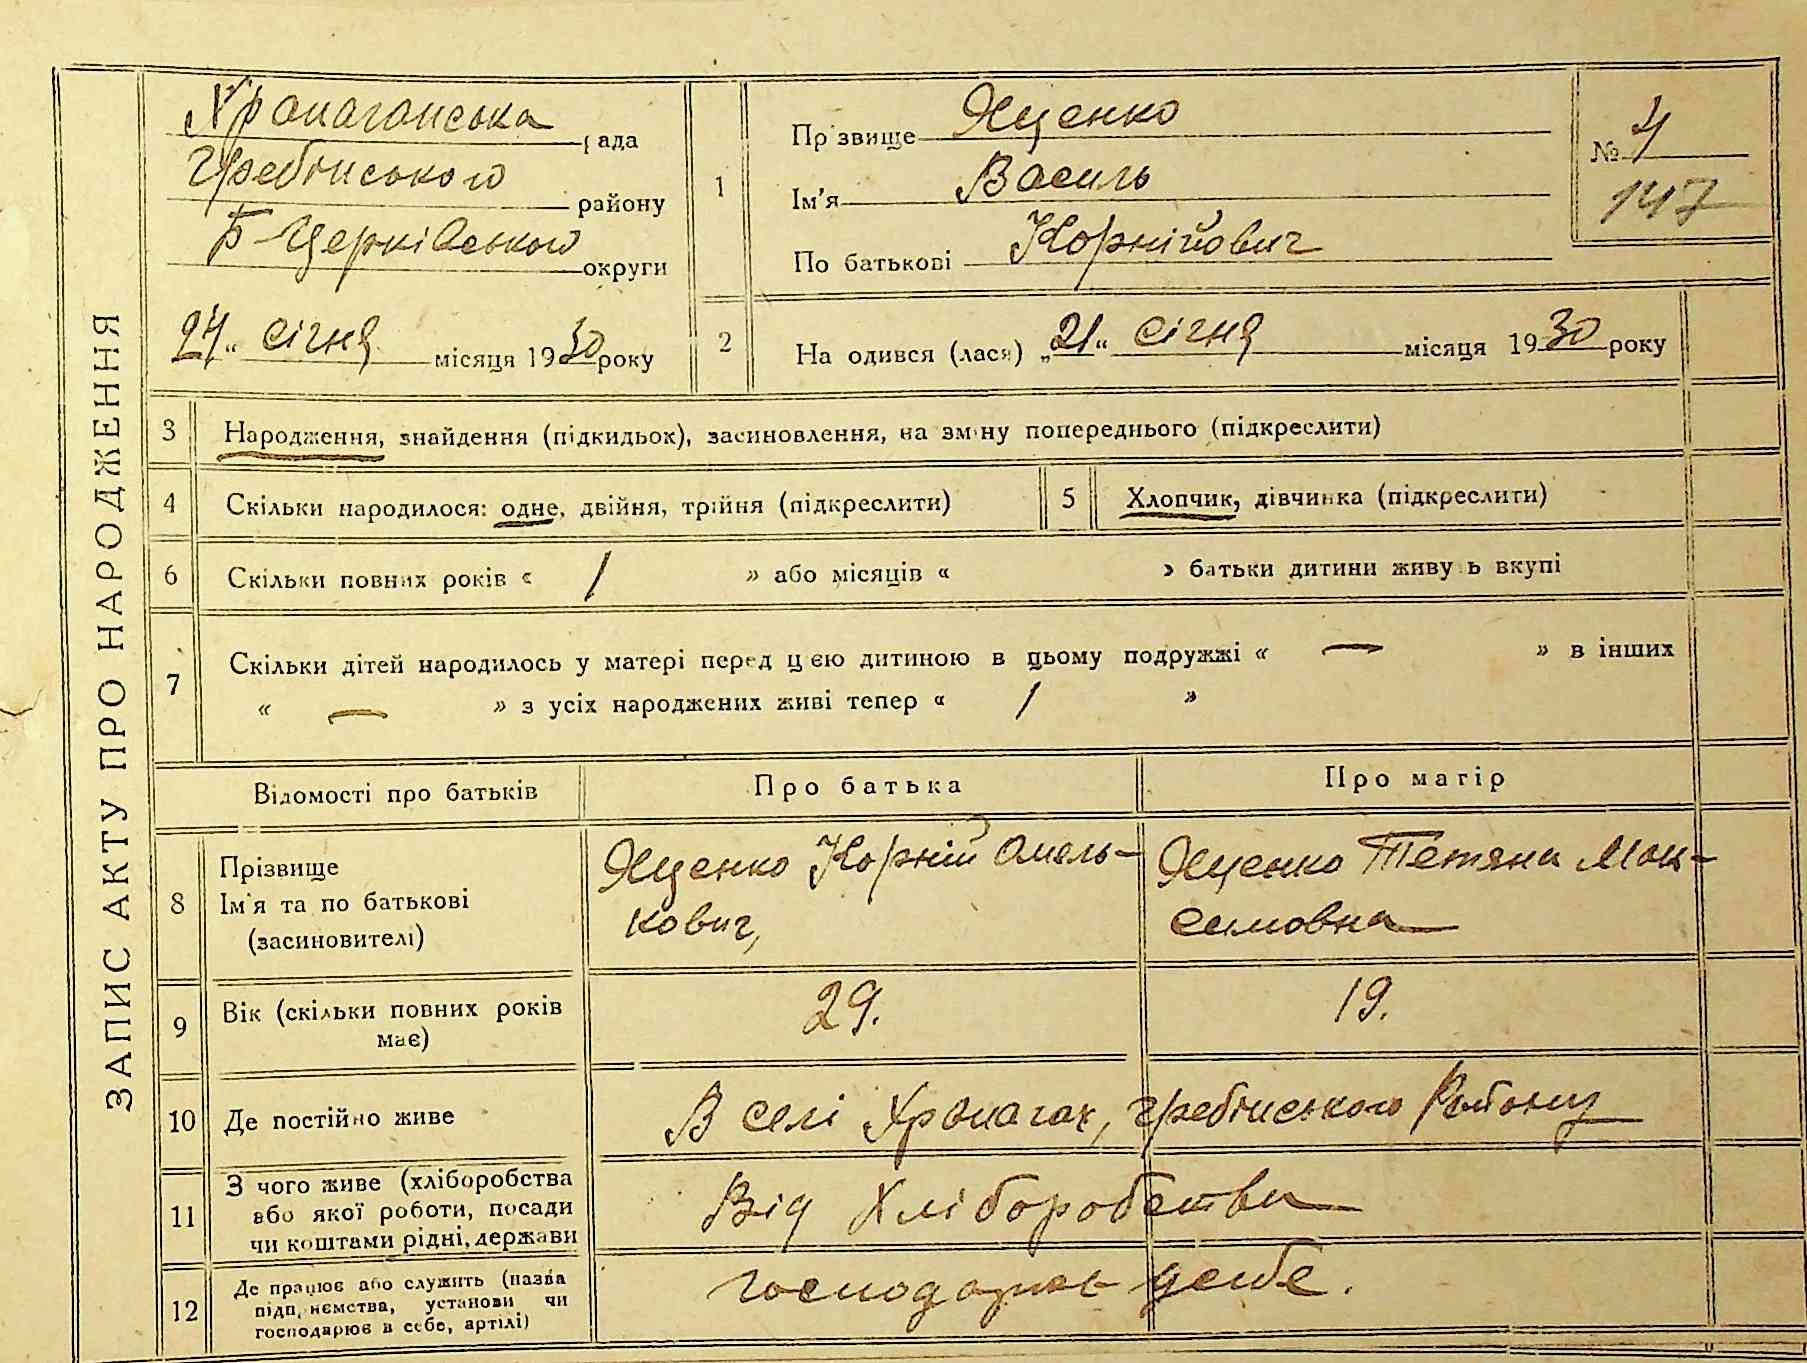 ЗАПИС АКТУ ПРО НАРОДЖЕННЯ
Храпаганська рада
Гребінського району
Б-Церківського округи
24 " січня місяця 1930 року
1
Прізвище Яценко
Ім'я Василь
По батькові Корнійович
№ 4
147
2 На одився (лася) „21" січня місяця 1930 року
3 Народження, знайдення (підкидьок), засиновлення, на зміну попереднього (підкреслити)
4 Скільки народилося: одне, двійня, трійня (підкреслити)
5 Хлопчик, дівчинка (підкреслити)
6 Скільки повних років « 1 » або місяців « » батьки дитини живуть вкупі
7 Скільки дітей народилось у матері перед цією дитиною в цьому подружжі « — » в інших
« — » з усіх народжених живі тепер « 1 »
Відомості про батьків Про батька Про матір
8 Прізвище
Ім'я та по батькові
(засиновителі)
Яценко Корній Омель-
кович,
Яценко Тетяна Мак-
симовна
9 Вік (скільки повних років
має)
29. 19.
10 Де постійно живе В селі Храпагах, Гребінського Району
11 З чого живе (хліборобства
або якої роботи, посади
чи коштами рідні, держави
Від Хліборобства
12 Де працює або служить (назва
підприємства, установи чи
господарює в себе, артілі)
господарює